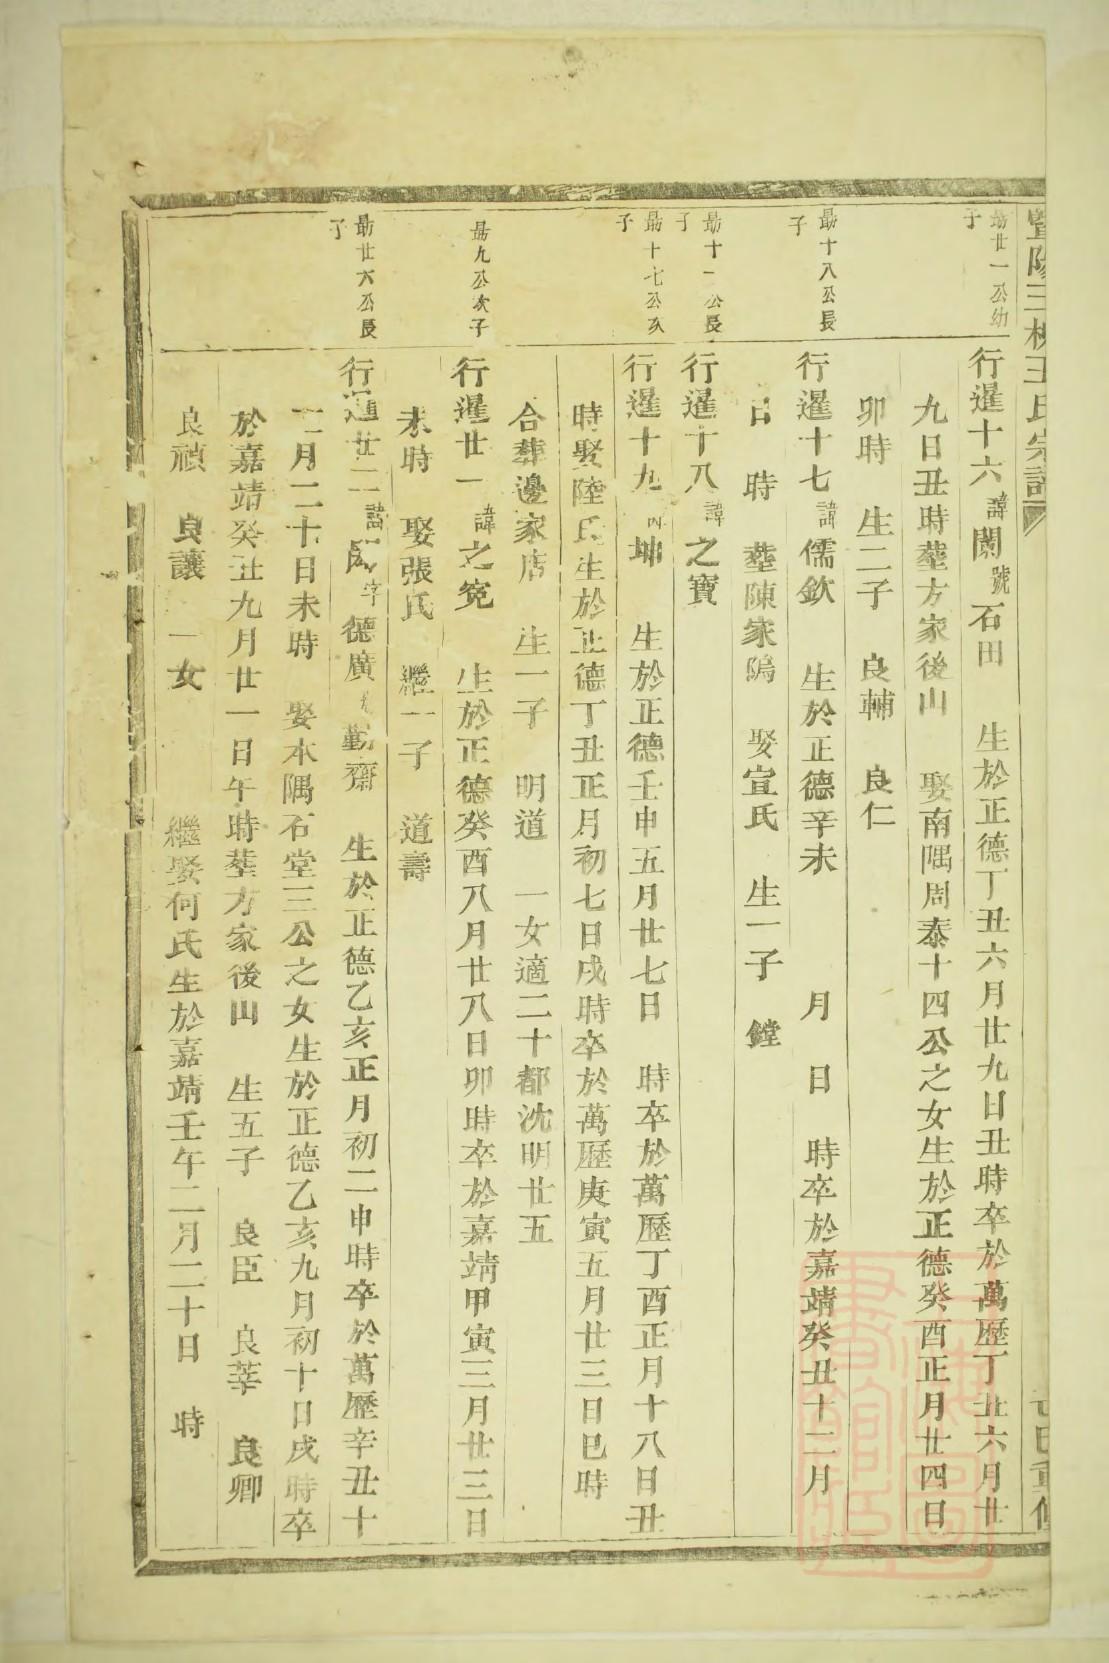 暨陽三板王氏宗譜
民重修
勗廿一公幼子
行暹十六諱閑號石田 生於正德丁丑六月廿九日丑時卒於萬歷丁丑六月廿
九日丑時葬方家後山 娶南隅周泰十四公之女生於正德癸酉正月廿四日
卯時 生二子 良輔 良仁
勗十八公長子
行暹十七諱儒欽 生於正德辛未 月 日 時卒於嘉靖癸丑十二月
日 時 葬陳家塢 娶宣氏 生一子 鏜
勗十一公長子
行暹十八諱之寶
勗十七公次子
行暹十九 坤 生於正德壬申五月廿七日 時卒於萬歷丁酉正月十八日丑
時娶陸氏生於正德丁丑正月初七日戌時卒於萬歷庚寅五月廿三日巳時
合葬邊家店 生一子 明道 一女適二十都沈明廿五
勗九公次子
行暹廿一諱之寬 生於正德癸酉八月廿八日卯時卒於嘉靖甲寅三月廿三日
未時 娶張氏 繼一子 道壽
勗廿六公長子
行暹廿二諱 字德廣 勤齋 生於正德乙亥正月初二申時卒於萬歷辛丑十
二月二十日未時 娶本隅石堂三公之女生於正德乙亥九月初十日戌時卒
於嘉靖癸丑九月廿一日午時葬方家後山 生五子 良臣 良莘 良卿
良禎 良讓 一女 繼娶何氏生於嘉靖壬午二月二十日 時